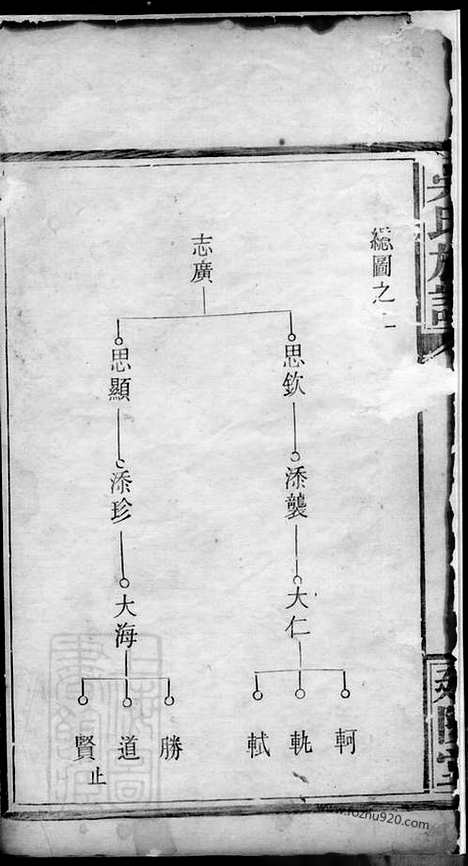 總圖之一
志廣
思欽
思顯
添襲
添珍
大仁
大海
軻
軌
軾
勝
道
賢
止
氏族譜
www.fozhu920.com